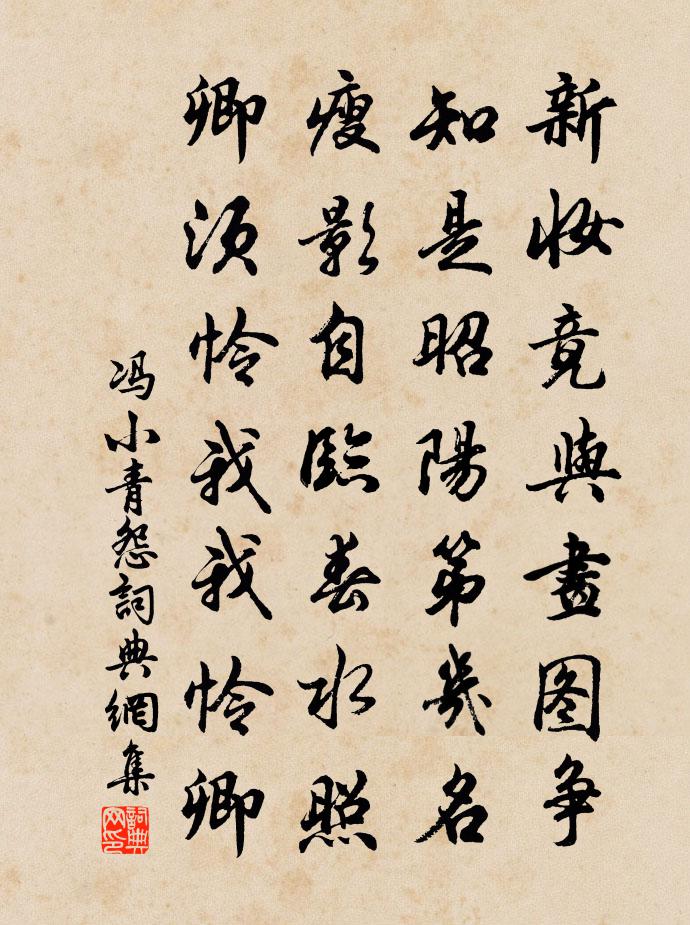 新妝竟與畫图争
知是昭陽第幾名
瘦影自臨春水照
卿須怜我我怜卿
冯小青怨詞典網集
詞典网印